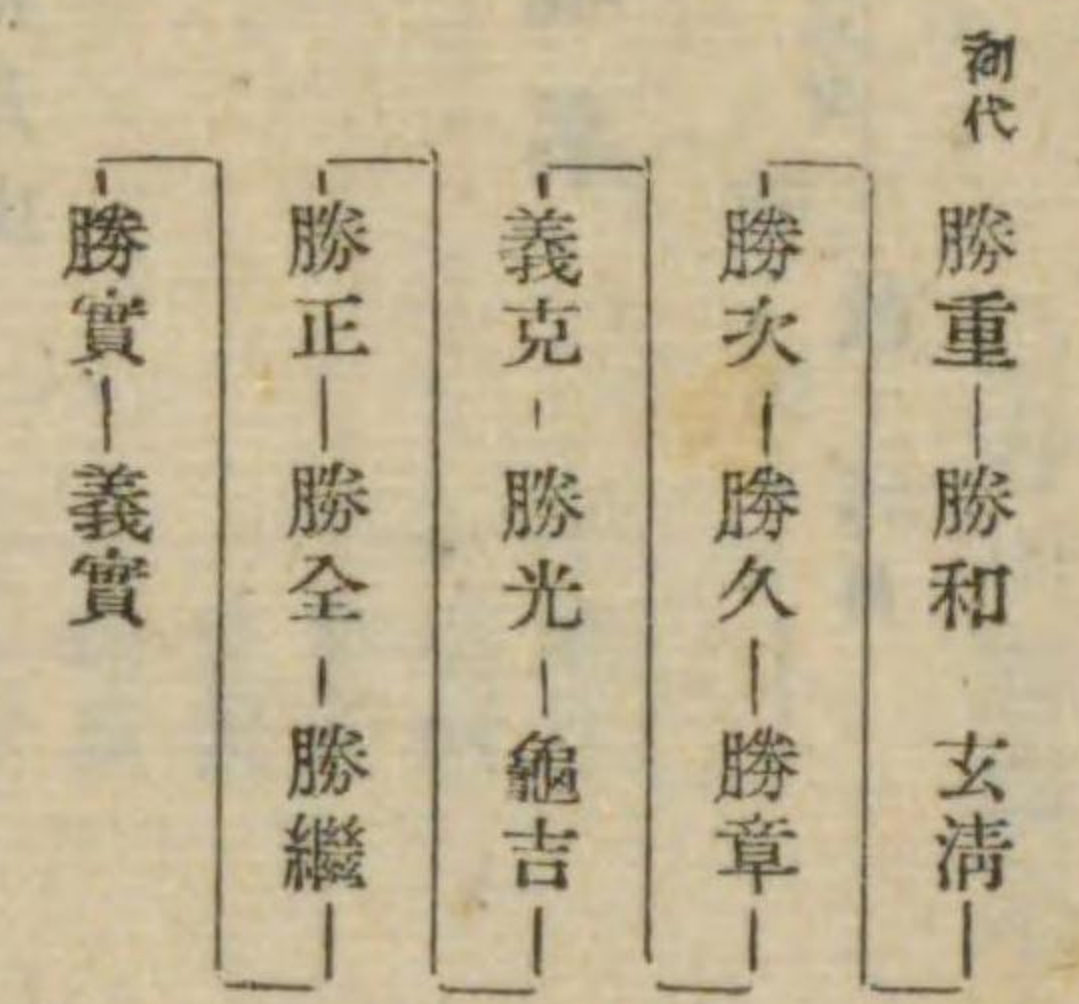 初代
勝重―勝和 玄淸―
勝次―勝久―勝章―
義克―勝光―龜吉―
勝正―勝全―勝繼―
勝實―義實